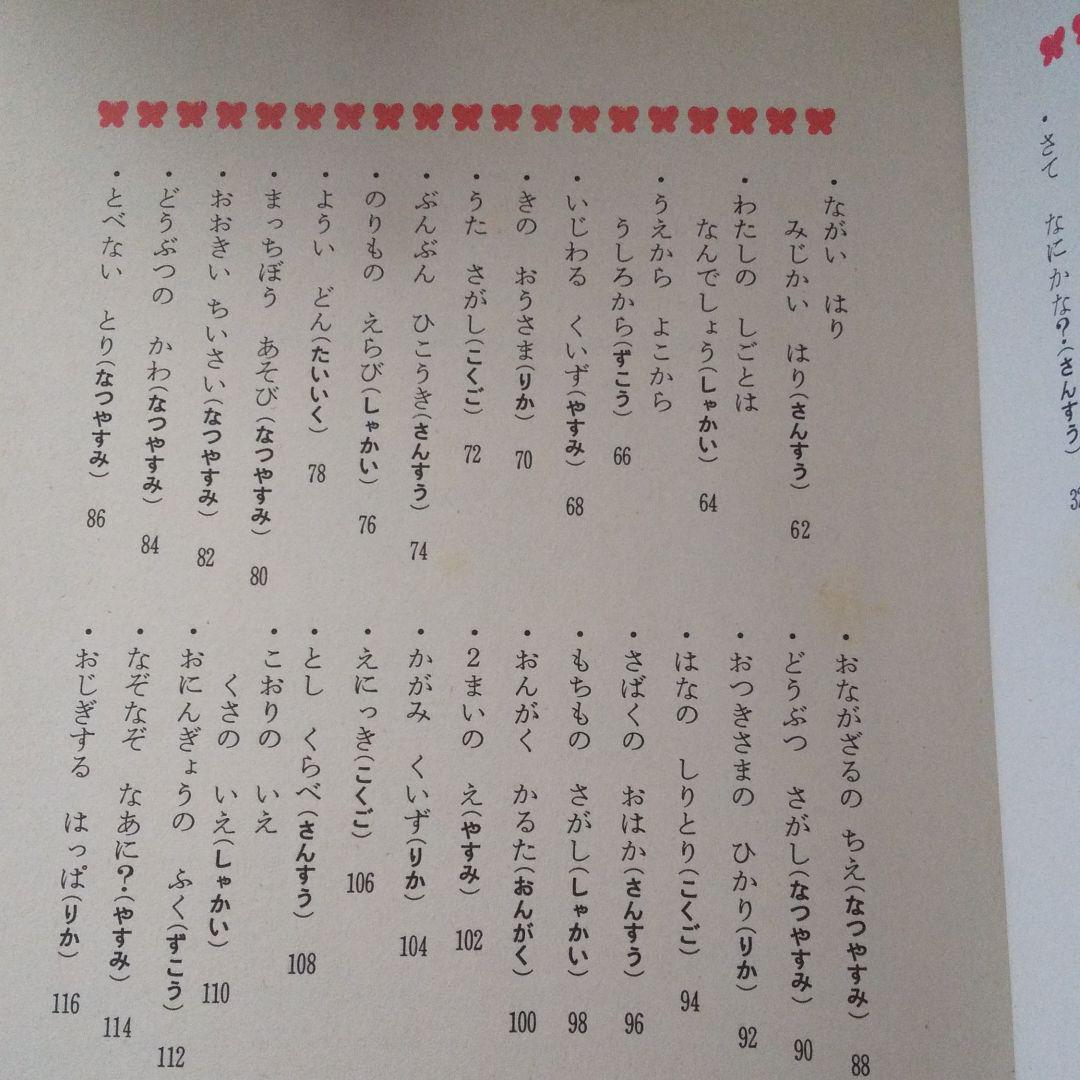 ・さて なにかな?・(さんすう)
・ながい はり
みじかい はり(さんすう) 62
・わたしの しごとは
なんでしょう(しゃかい) 64
・うえから よこから
うしろから(ずこう) 66
・いじわる くいず(やすみ) 68
・きの おうさま(りか) 70
・うた さがし(こくご) 72
・ぶんぶん ひこうき(さんすう) 74
・のりもの えらび(しゃかい) 76
・ようい どん(たいいく) 78
・まっちぼう あそび(なつやすみ) 80
・おおきい ちいさい(なつやすみ) 82
・どうぶつの かわ(なつやすみ) 84
・とべない とり(なつやすみ) 86
・おながざるの ちえ(なつやすみ) 88
・どうぶつ さがし(なつやすみ) 90
・おつきさまの ひかり(りか) 92
・はなの しりとり(こくご) 94
・さばくの おはか(さんすう) 96
・もちもの さがし(しゃかい) 98
・おんがく かるた(おんがく) 100
・2まいの え(やすみ) 102
・かがみ くいず(りか) 104
・えにっき(こくご) 106
・とし くらべ(さんすう) 108
・こおりの いえ
くさの いえ(しゃかい) 110
・おにんぎょうの ふく(ずこう) 112
・なぞなぞ なあに?・(やすみ) 114
・おじぎする はっぱ(りか) 116